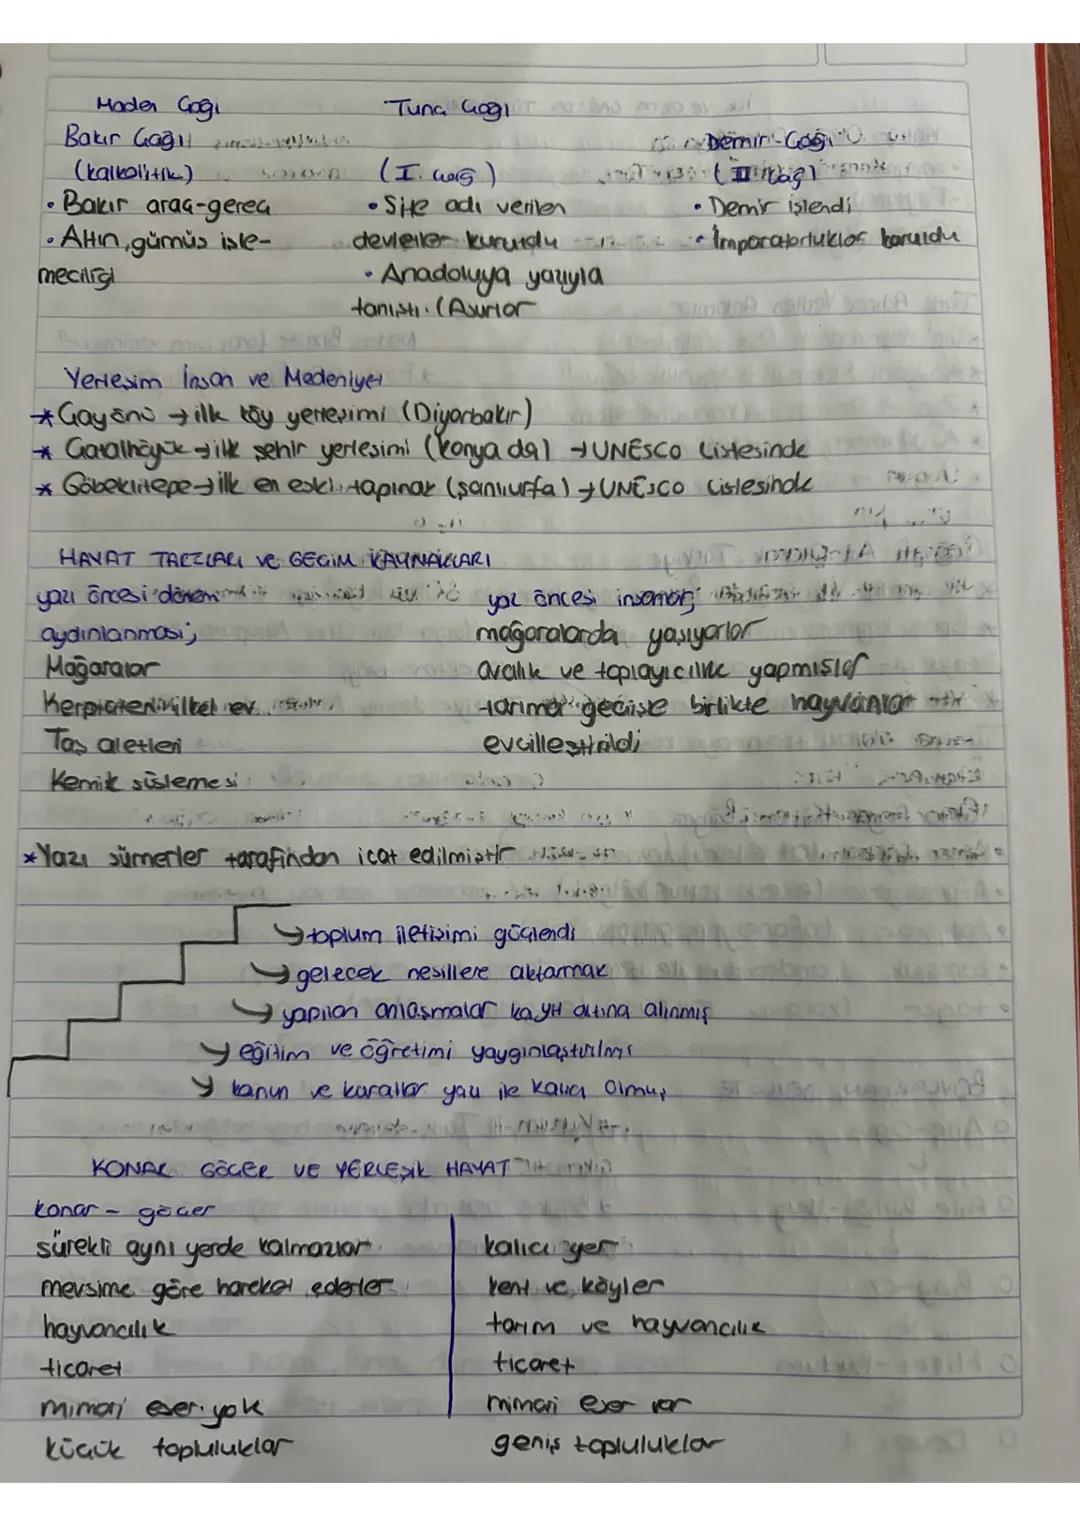 Maden Çağı
Tunç Çağı
Bakır Çağı
Demir Çağı
(kalkolitik)
(I. Çağ)
(II Çağ)
• Bakır araç-gereç
• Site adı verilen
• Demir işlendi
• Altın, gümüş işle-
devletler kuruldu
• İmparatorluklar kuruldu
meciliği
• Anadoluya yazıyla
tanıştı. (Asurlar
Yerleşim İnsan ve Medeniyet
* Çayönü → ilk köy yerleşimi (Diyarbakır)
* Çatalhöyük → ilk şehir yerleşimi (Konya da) → UNESCO Listesinde
* Göbeklitepe → ilk en eski tapınak (Şanlıurfa) → UNESCO Listesinde
HAYAT TARZLARI VE GEÇİM KAYNAKLARI
yazı öncesi dönem
aydınlanması;
Mağaralar
ilkel ev
Taş aletleri
Kemik süslemesi
yazı öncesi insanlar;
mağaralarda yaşıyorlar
avcılık ve toplayıcılık yapmışlar
tarıma geçişle birlikte hayvanlar
evcilleştirildi
* Yazı sümerler tarafından icat edilmiştir
→ toplum iletişimi güçlendi
→ gelecek nesillere aktarmak
→ yapılan anlaşmalar kayıt altına alınmış
→ eğitim ve öğretimi yaygınlaştırılmış
→ kanun ve kurallar yazı ile kalıcı olmuş
KONAR GÖÇER VE YERLEŞİK HAYAT
konar - göçer
sürekli aynı yerde kalmazlar
mevsime göre hareket ederler
hayvancılık
ticaret
mimari eser yok
küçük topluluklar
kalıcı yer
kent ve köyler
tarım ve hayvancılık
ticaret
mimari eser var
geniş topluluklar